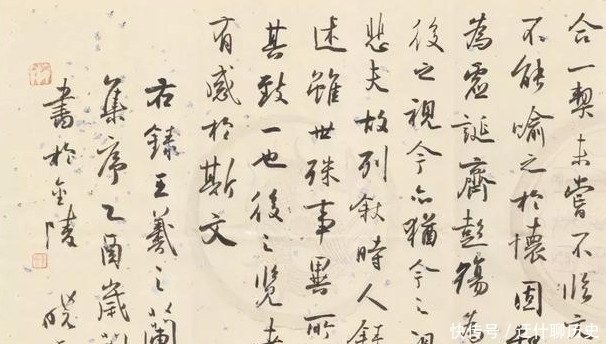 合一契未嘗不臨
不能喻之於懷固
為虛誕齊彭殤為
後之視今亦猶今之視
悲夫故列敘時人錄
述雖世殊事異所
其致一也後之覽者
有感於斯文
右錄王羲之蘭
集序乙酉歲
書於金陵 曉
快传号/仕聊历史